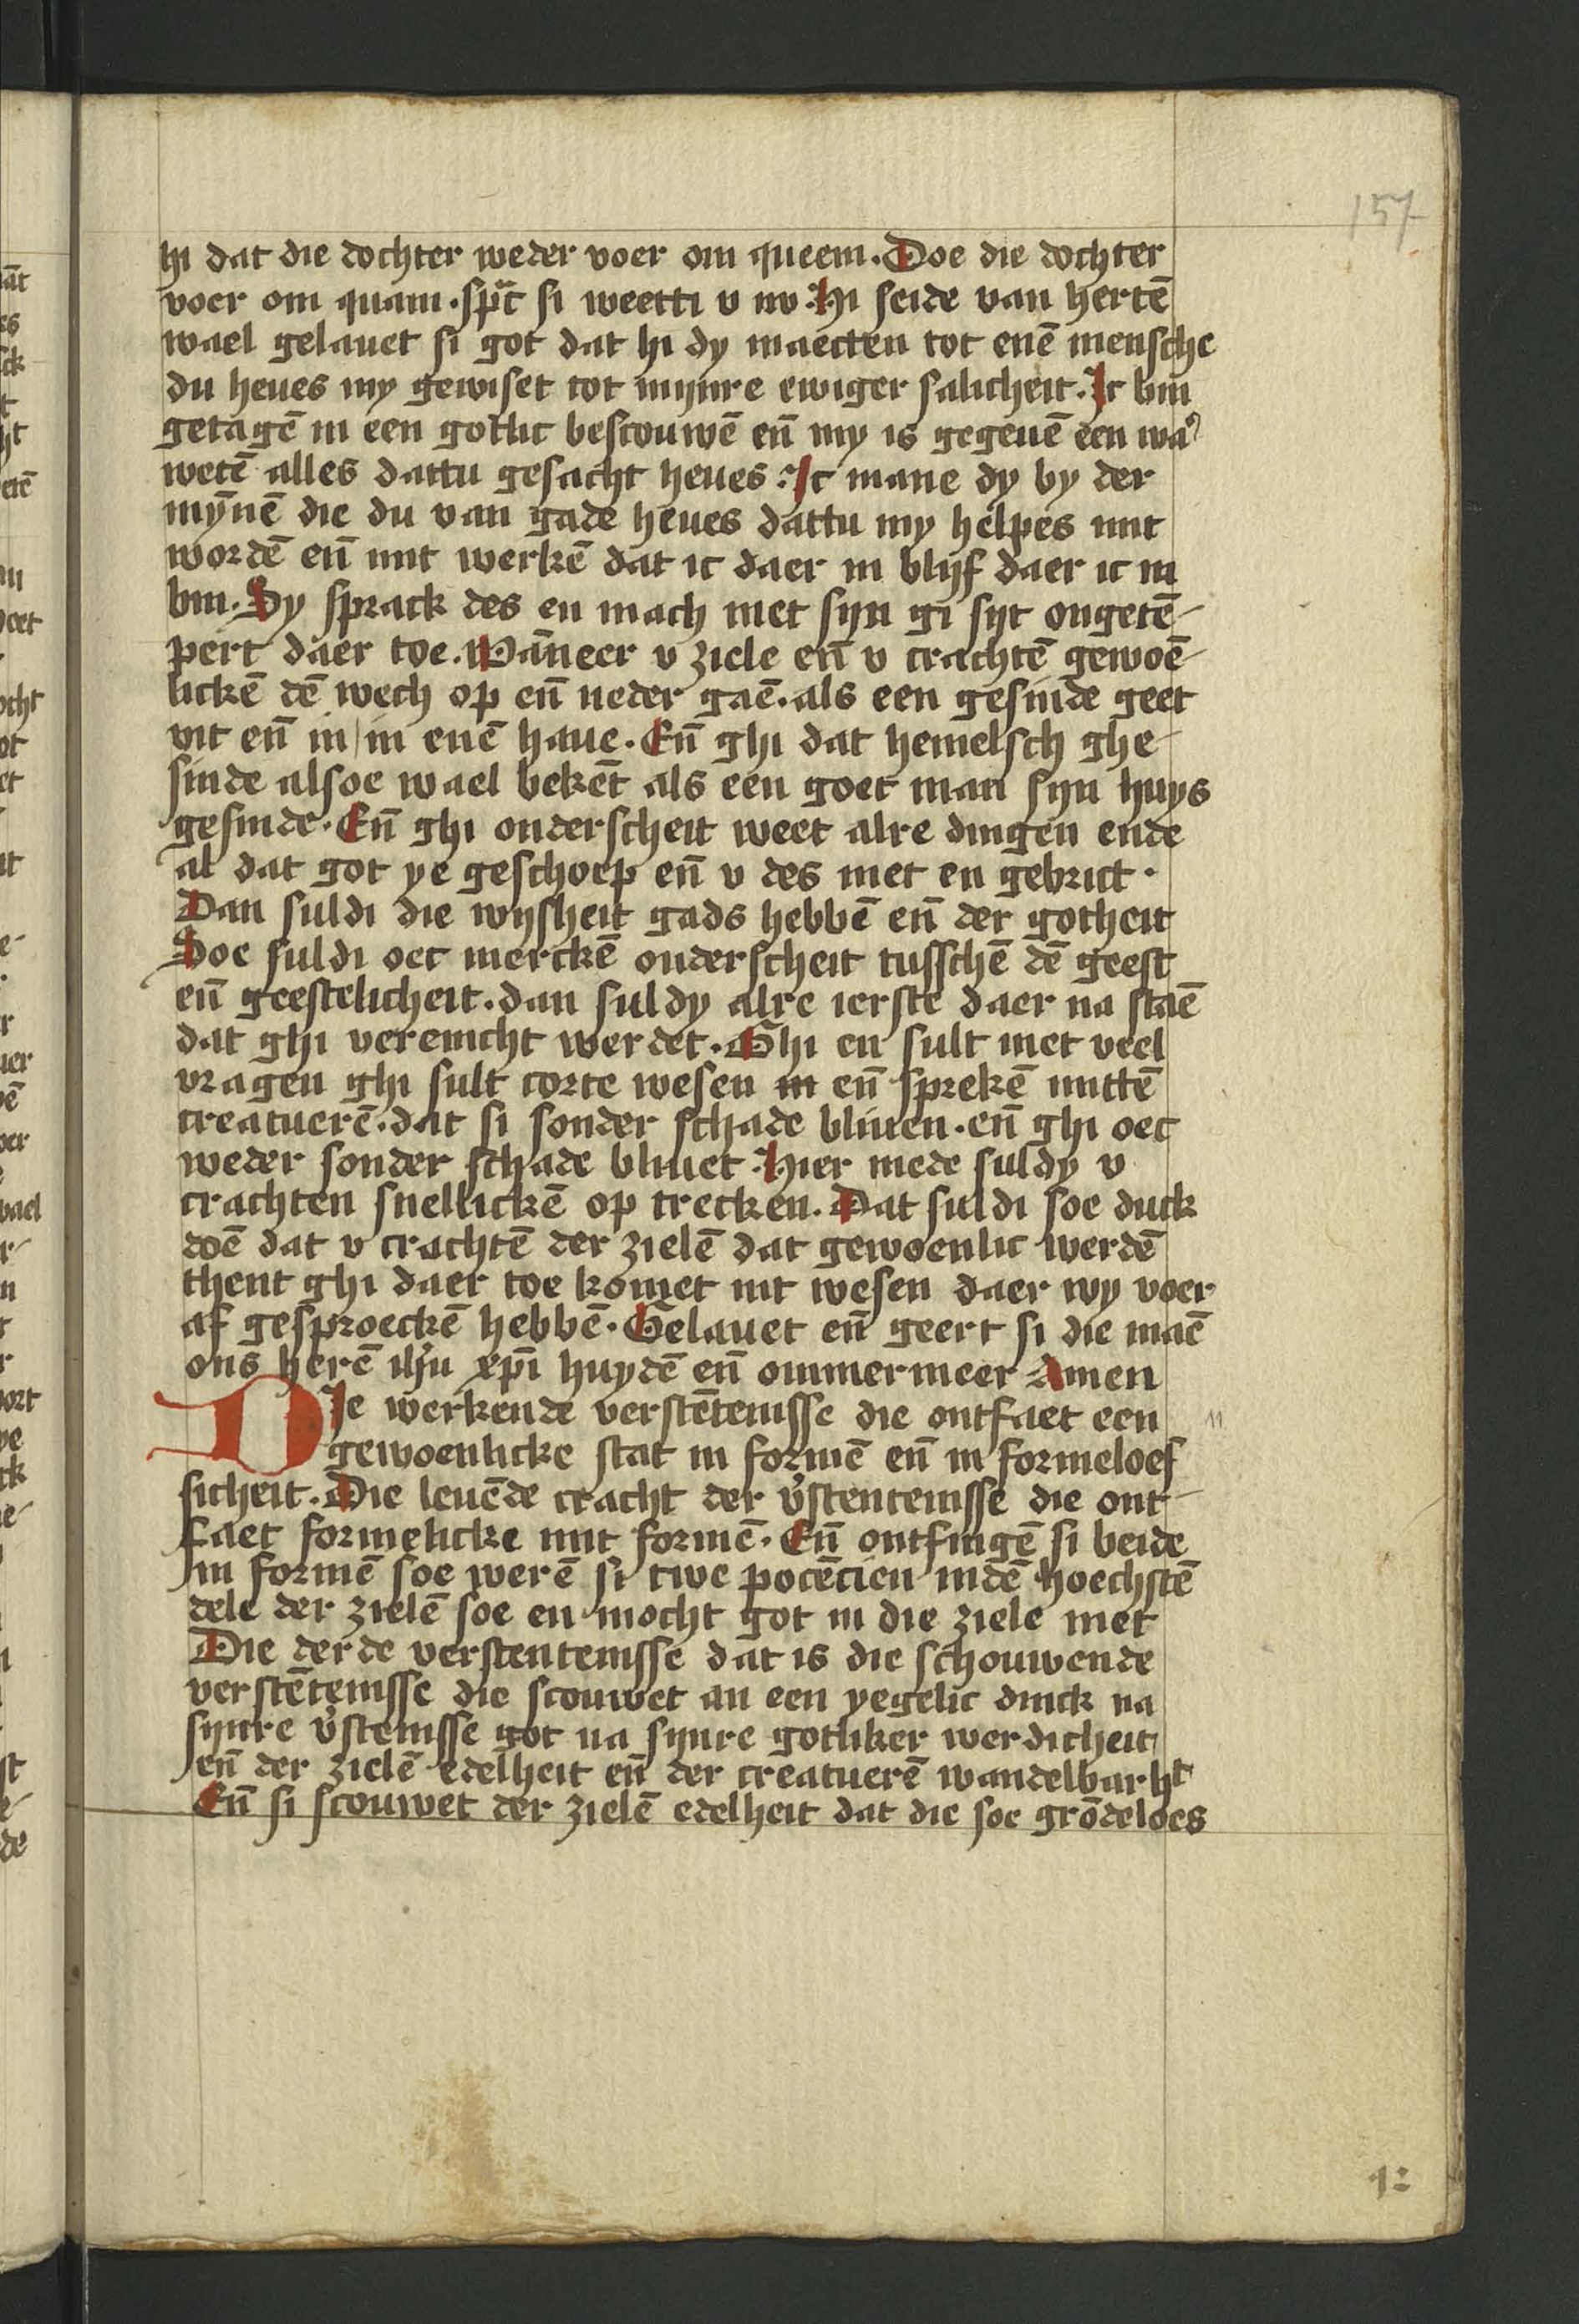 157
hi dat die dochter weder voer om queem. Doe die dochter
voer om quam. sp̄c si weetti v nv. Hi seide van hertē
wael gelauet si got dat hi dy maecten tot enē mensche
du heues my gewiset tot mynre ewiger salicheit. Ic bin
getagē in een gotlic bescouwē eñ my is gegeuē een waʾ
wetē alles dattu gesacht heues. Ic mane dy by der
mȳnē die du van gade heues dattu my helpes mit
wordē eñ mit werkē dat ic daer in blijf daer ic in
bin. Sy sprack des en mach niet sijn gi sijt ongetē-
pert daer toe. Wāneer v ziele eñ v crachtē gewoē-
lickē dē wech op eñ neder gaē. als een gesinde geet
vit eñ in in enē haue. Eñ ghi dat hemelsch ghe-
sinde alsoe wael bekēt als een goet man sijn huys
gesinde. Eñ ghi onderscheit weet alre dingen ende
al dat got ye geschoep eñ v des niet en gebrict.
Dan suldi die wijsheit gads hebbē eñ der gotheit
Soe suldi oec merckē onderscheit tusschē dē geest
eñ geestelicheit. dan suldy alre ierste daer na staē
dat ghi vereinicht werdet. Ghi en sult niet veel
vragen ghi sult corte wesen in eñ sprekē mittē
creatuerē. dat si sonder schade bliuen. eñ ghi oec
weder sonder schade bliuet. Hier mede suldy v
crachten snellickē op trecken. Dat suldi soe duck
doē dat v crachtē der zielē dat gewoenlic werdē
thent ghi daer toe komet int wesen daer wy voer
af gesproeckē hebbē. Gelauet eñ geert si die naē
ons herē ihu xpi huydē eñ ommermeer Amen
DIe werkende verstētenisse die ontfaet een
gewoenlicke stat in formē eñ in formeloes
sicheit. Die leuēde cracht der v̓stentenisse die ont-
faet formelicke mit formē. Eñ ontfingē si beide
In formē soe werē si twe potēcien indē hoechstē
dele der zielē soe en mocht got in die ziele niet
Die derde verstentenisse dat is die schouwende
verstētenisse die scouwet an een yegelic dinck na
synre v̓stenisse got na synre gotliker werdicheit
eñ der zielē edelheit eñ der creatuerē wandelbarht
Eñ si scouwet der zielē edelheit dat die soe grōdeloes